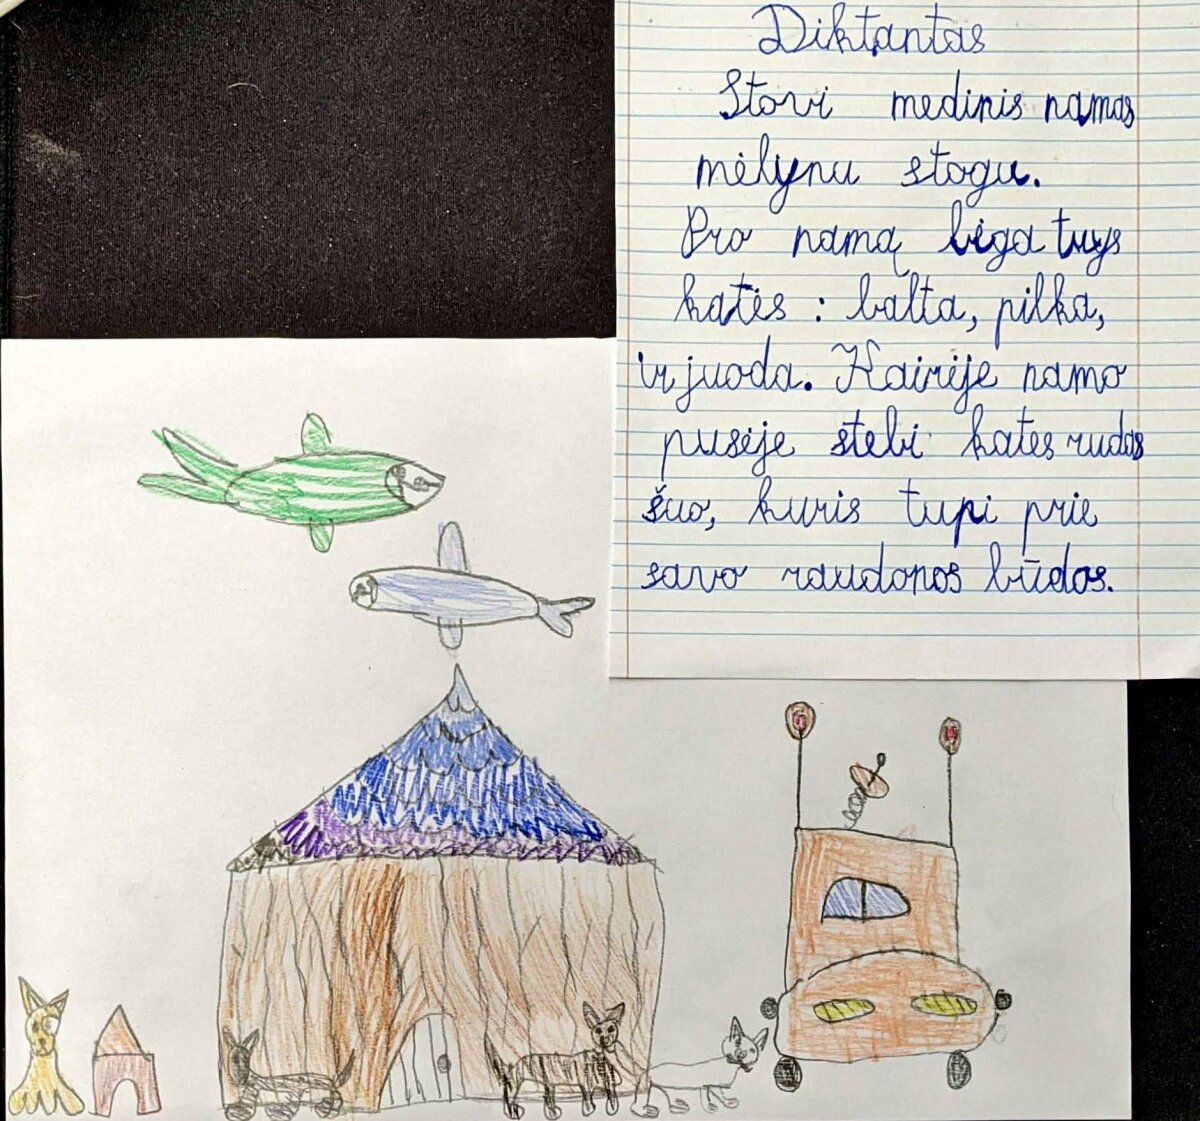 Diktantas
Stovi medinis namas
mėlynu stogu.
Pro namą bėga trys
katės : balta, pilka,
ir juoda. Kairėje namo
pusėje stebi kates rudas
šuo, kuris tupi prie
savo raudonos būdos.